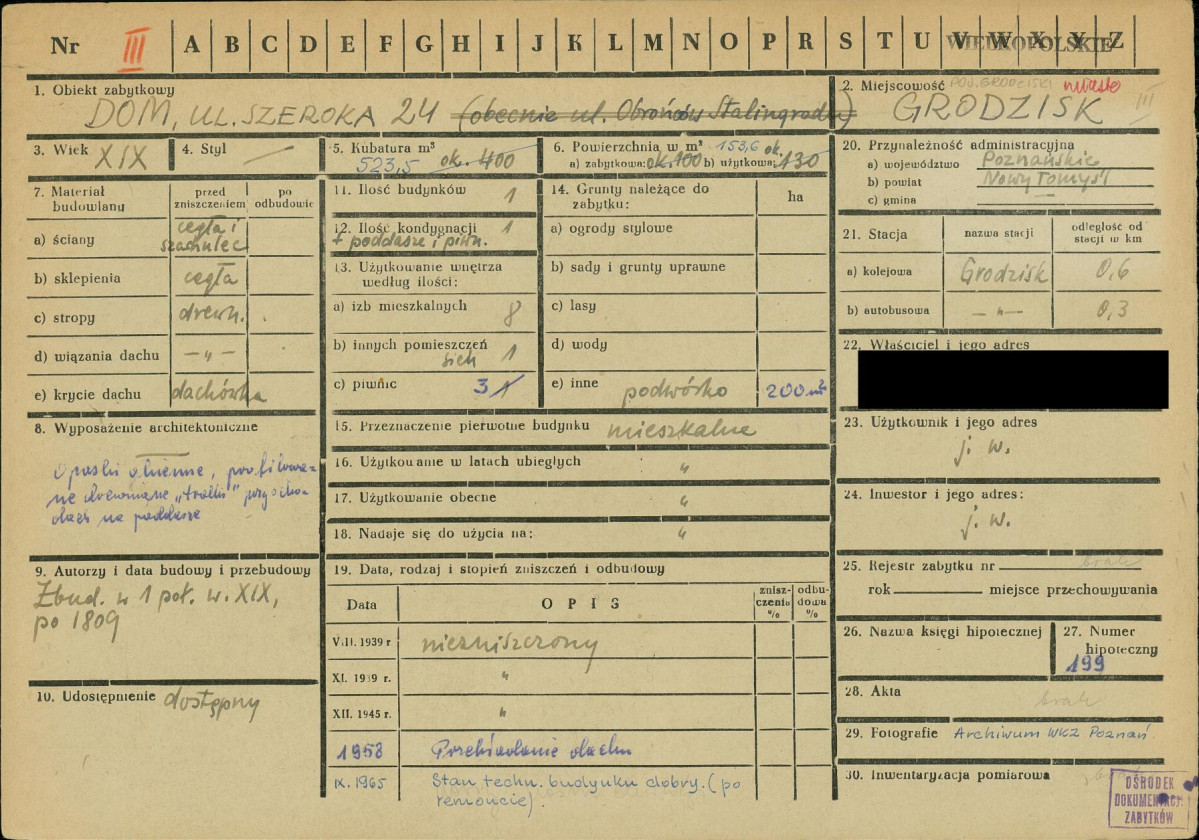 Nr III A B C D E F G H I J K L M N O P R S T U V W X Y Z
WIELKOPOLSKIE
1. Obiekt zabytkowy
DOM, UL. SZEROKA 24 (obecnie ul. Obrońców Stalingradu)
2. Miejscowość POW. GRODZISKI miasto
GRODZISK III
3. Wiek XIX
4. Styl —
5. Kubatura m³
523,5 ok. 400
6. Powierzchnia w m² 153,6 ok.
a) zabytkowa: ok. 100 b) użytkowa: 130
20. Przynależność administracyjna
a) województwo Poznańskie
b) powiat Nowy Tomyśl
c) gmina —
7. Materiał budowlany
przed zniszczeniem
po odbudowie
a) ściany cegła i
szachulec
b) sklepienia cegła
c) stropy drewn.
d) wiązania dachu —„—
e) krycie dachu dachówka
11. Ilość budynków 1
12. Ilość kondygnacji 1
+ poddasze i piwn.
13. Użytkowanie wnętrza
według ilości:
a) izb mieszkalnych 8
b) innych pomieszczeń
sień 1
c) piwnic 3 1
14. Grunty należące do
zabytku:
ha
a) ogrody stylowe
b) sady i grunty uprawne
c) lasy
d) wody
e) inne podwórko 200 m²
21. Stacja
nazwa stacji
odległość od
stacji w km
a) kolejowa Grodzisk 0,6
b) autobusowa —„— 0,3
22. Właściciel i jego adres
23. Użytkownik i jego adres
j. w.
24. Inwestor i jego adres:
j. w.
8. Wyposażenie architektoniczne
Opaski okienne, profilowa=
ne drewniane „tralki” przy scho=
dach na poddasze
15. Przeznaczenie pierwotne budynku mieszkalne
16. Użytkowanie w latach ubiegłych „
17. Użytkowanie obecne „
18. Nadaje się do użycia na: „
9. Autorzy i data budowy i przebudowy
Zbud. w 1 poł. w. XIX,
po 1809
10. Udostępnienie dostępny
19. Data, rodzaj i stopień zniszczeń i odbudowy
Data
OPIS
znisz-
czenie
%
odbu-
dowa
%
VIII. 1939 r niezniszczony
XI. 1939 r. „
XII. 1945 r. „
1958 Przebudowanie dachu
IX. 1965 Stan techn. budynku dobry. (po
remoncie).
25. Rejestr zabytku nr brak
rok miejsce przechowywania
26. Nazwa księgi hipotecznej
27. Numer
hipoteczny
199
28. Akta brak
29. Fotografie Archiwum WKZ Poznań
30. Inwentaryzacja pomiarowa
OŚRODEK
DOKUMENTACJI
ZABYTKÓW